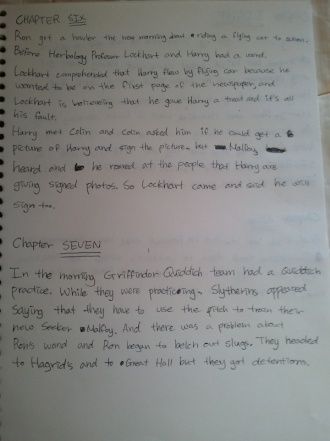 CHAPTER SIX
Ron got a howler the new morning about riding a flying car to school.
Before Herbology Professor Lockhart and Harry had a word.
Lockhart comprehended that Harry flew by flying car because he
wanted to be on the first page of the newspaper, and
Lockhart is believing that he gave Harry a tread and it's all
his fault.
Harry met Colin and Colin asked him if he could get a
picture of Harry and sign the picture. but Malfoy
heard and he roared at the people that Harry are
giving signed photos. So Lockhart came and said he will
sign too.
Chapter SEVEN
In the morning, Griffindor Quiddich team had a Quiddich
practice. While they were practicing. Slytherins appeared
Saying that they have to use the pitch to train their
new Seeker Malfoy. And there was a problem about
Ron's wand and Ron began to belch out slugs. They headed
to Hagrid's and to Great Hall but they got detentions.